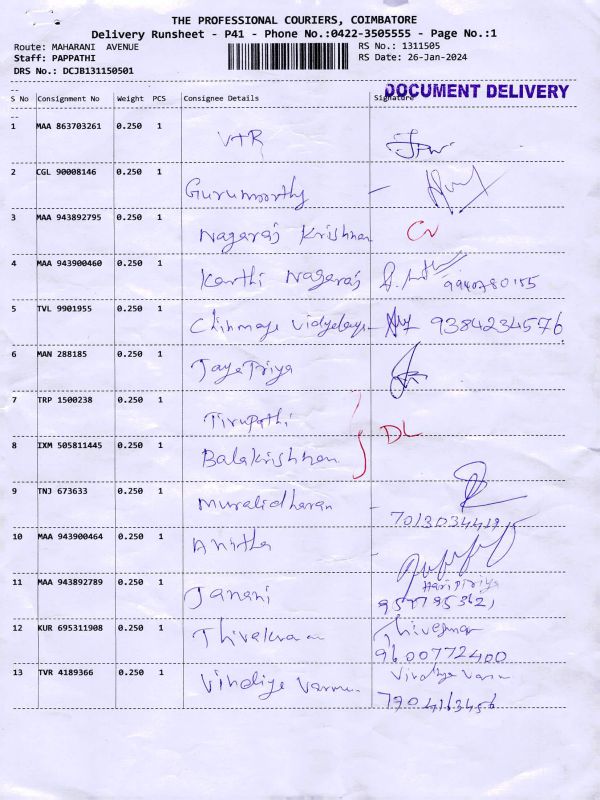 THE PROFESSIONAL COURIERS, COIMBATORE
Delivery Runsheet - P41 - Phone No.:0422-3505555 - Page No.:1
Route: MAHARANI AVENUE RS No.: 1311505
Staff: PAPPATHI RS Date: 26-Jan-2024
DRS No.: DCJB131150501
DOCUMENT DELIVERY
S No Consignment No Weight PCS Consignee Details Signature
1 MAA 863703261 0.250 1 V+R
2 CGL 90008146 0.250 1 Gurumoorthy -
3 MAA 943892795 0.250 1 Nagaraj Krishnan
4 MAA 943900460 0.250 1 Karthi Nagaraj
5 TVL 9901955 0.250 1 Chinmaya Vidyalaya - 9384234576
6 MAN 288185 0.250 1 JayaPriya
7 TRP 1500238 0.250 1 Tirupathi
DL
8 IXM 505811445 0.250 1 Balakrishnan
9 TNJ 673633 0.250 1 Muralidharan
10 MAA 943900464 0.250 1 Anitha
Haripriya
11 MAA 943892789 0.250 1 Janani
12 KUR 695311908 0.250 1 9600772400
13 TVR 4189366 0.250 1 Vindiya